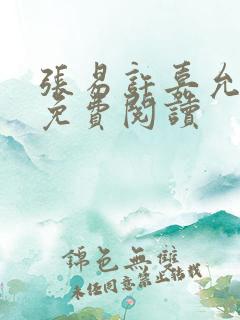 張易許嘉允
免費閱讀
錦色無雙
未經同意禁止轉載